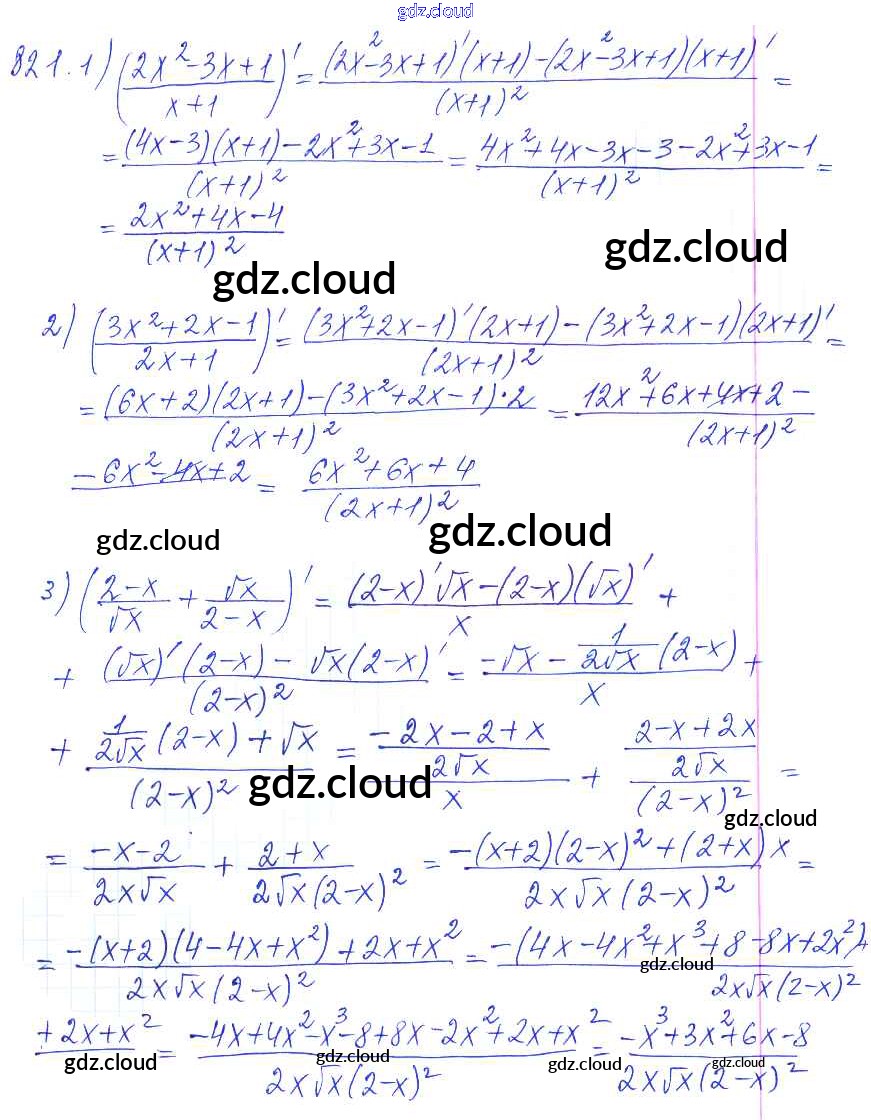 gdz.cloud
821. 1) ((2x²-3x+1)/(x+1))' = ((2x²-3x+1)'(x+1)-(2x²-3x+1)(x+1)')/(x+1)² =
= ((4x-3)(x+1)-2x²+3x-1)/(x+1)² = (4x²+4x-3x-3-2x²+3x-1)/(x+1)² =
= (2x²+4x-4)/(x+1)²
gdz.cloud
gdz.cloud
2) ((3x²+2x-1)/(2x+1))' = ((3x²+2x-1)'(2x+1)-(3x²+2x-1)(2x+1)')/(2x+1)² =
= ((6x+2)(2x+1)-(3x²+2x-1)·2)/(2x+1)² = (12x²+6x+4x+2-)/(2x+1)²
-6x²-4x+2 = (6x²+6x+4)/(2x+1)²
gdz.cloud
gdz.cloud
3) ((2-x)/√x + √x/(2-x))' = ((2-x)'√x-(2-x)(√x)')/x +
+ ((√x)'(2-x)-√x(2-x)')/(2-x)² = (-√x - 1/(2√x) (2-x))/x +
+ (1/(2√x) (2-x)+√x)/(2-x)² = ((-2x-2+x)/(2√x))/x + ((2-x+2x)/(2√x))/(2-x)² =
gdz.cloud
gdz.cloud
= (-x-2)/(2x√x) + (2+x)/(2√x(2-x)²) = (-(x+2)(2-x)²+(2+x)x)/(2x√x(2-x)²) =
= (-(x+2)(4-4x+x²)+2x+x²)/(2x√x(2-x)²) = (-(4x-4x²+x³+8-8x+2x²)+)/(2x√x(2-x)²)
gdz.cloud
+2x+x² = (-4x+4x²-x³-8+8x-2x²+2x+x²)/(2x√x(2-x)²) = (-x³+3x²+6x-8)/(2x√x(2-x)²)
gdz.cloud
gdz.cloud
gdz.cloud
gdz.cloud